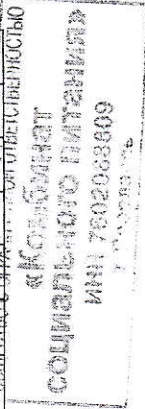 ОТВЕТСТВЕННОСТЬЮ
«Комбинат
социального питания»
ИНН 7602068609